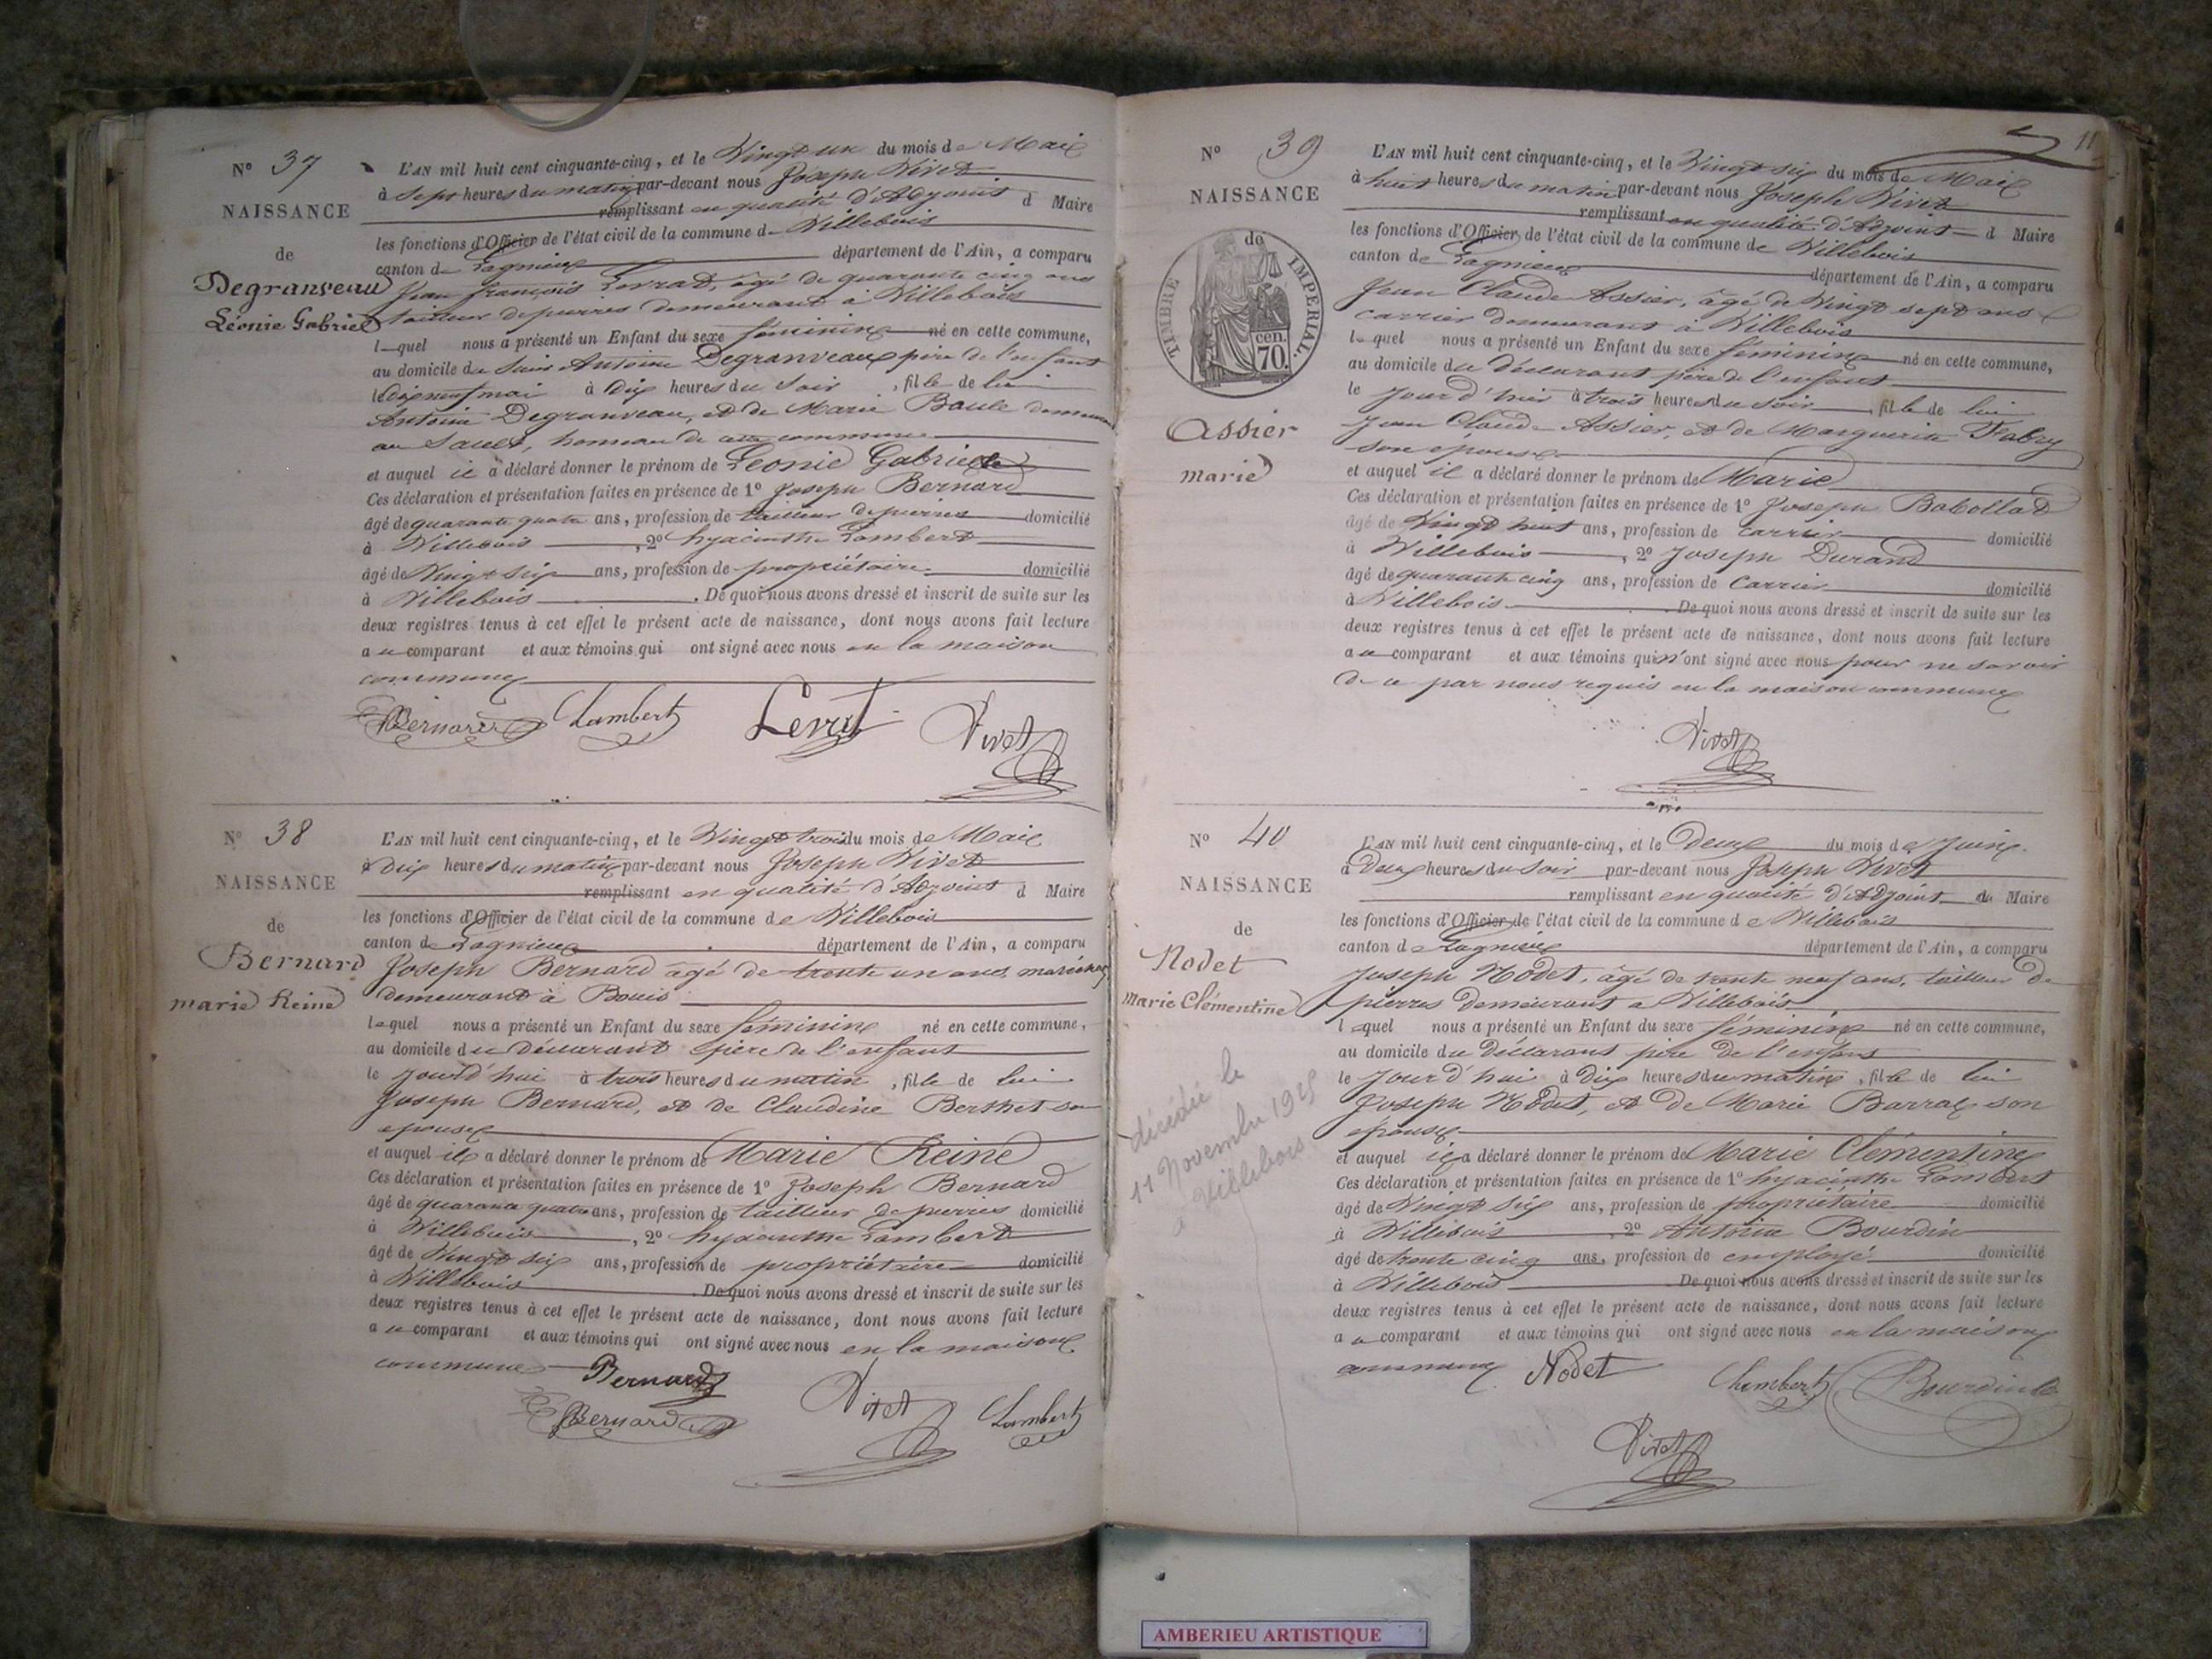 N° 37
NAISSANCE
de
Degranveau
Léonie Gabriel
L'AN mil huit cent cinquante-cinq, et le Vingt un du mois de Mai
à sept heures du matin par-devant nous Joseph Vivet
remplissant en qualité d'Adjoint d Maire
les fonctions d'Officier de l'état civil de la commune de Villebois
canton de Lagnieu département de l'Ain, a comparu
Jean françois Levrat, âgé de quarante cinq ans
tailleur de pierres demeurant à Villebois
lequel nous a présenté un Enfant du sexe féminin né en cette commune,
au domicile du Antoine Degranveau père de l'enfant
le dix neuf mai à dix heures du soir, fille de lui
Antoine Degranveau, et de Marie Baule
au Sault, hameau de cette commune
et auquel il a déclaré donner le prénom de Léonie Gabriele
Ces déclaration et présentation faites en présence de 1° Joseph Bernard
âgé de quarante quatre ans, profession de tailleur de pierres domicilié
à Villebois, 2° hyacinthe Lambert
âgé de Vingt six ans, profession de propriétaire domicilié
à Villebois. De quoi nous avons dressé et inscrit de suite sur les
deux registres tenus à cet effet le présent acte de naissance, dont nous avons fait lecture
au comparant et aux témoins qui ont signé avec nous en la maison
commune
Bernard Lambert Levrat Vivet
N° 38
NAISSANCE
de
Bernard
marie Reine
L'AN mil huit cent cinquante-cinq, et le Vingt trois du mois de Mai
à Dix heures du matin par-devant nous Joseph Vivet
remplissant en qualité d'Adjoint d Maire
les fonctions d'Officier de l'état civil de la commune de Villebois
canton de Lagnieu département de l'Ain, a comparu
Joseph Bernard âgé de trente un ans, maréchal
demeurant à Bouis
lequel nous a présenté un Enfant du sexe féminin né en cette commune,
au domicile du déclarant père de l'enfant
le jourd'hui à trois heures du matin, fille de lui
Joseph Bernard, et de Claudine Berthet son
épouse
et auquel il a déclaré donner le prénom de Marie Reine
Ces déclaration et présentation faites en présence de 1° Joseph Bernard
âgé de quarante quatre ans, profession de tailleur de pierres domicilié
à Villebois, 2° hyacinthe Lambert
âgé de Vingt six ans, profession de propriétaire domicilié
à Villebois. De quoi nous avons dressé et inscrit de suite sur les
deux registres tenus à cet effet le présent acte de naissance, dont nous avons fait lecture
au comparant et aux témoins qui ont signé avec nous en la maison
commune Bernard
Bernard Vivet Lambert
11
N° 39
NAISSANCE
de
TIMBRE IMPERIAL.
70. cen.
Assier
marie
L'AN mil huit cent cinquante-cinq, et le Vingt six du mois de Mai
à huit heures du matin par-devant nous Joseph Vivet
remplissant en qualité d'Adjoint d Maire
les fonctions d'Officier de l'état civil de la commune de Villebois
canton de Lagnieu département de l'Ain, a comparu
Jean Claude Assier, âgé de Vingt sept ans
carrier demeurant à Villebois
lequel nous a présenté un Enfant du sexe féminin né en cette commune,
au domicile du déclarant père de l'enfant
le jour d'hier à trois heures du soir, fille de lui
Jean Claude Assier, et de Marguerite Fabry
son épouse
et auquel il a déclaré donner le prénom de Marie
Ces déclaration et présentation faites en présence de 1° Joseph Babollat
âgé de Vingt huit ans, profession de carrier domicilié
à Villebois, 2° Joseph Durand
âgé de quarante cinq ans, profession de Carrier domicilié
à Villebois. De quoi nous avons dressé et inscrit de suite sur les
deux registres tenus à cet effet le présent acte de naissance, dont nous avons fait lecture
au comparant et aux témoins qui n'ont signé avec nous pour ne savoir
de ce par nous requis en la maison commune
Vivet
N° 40
NAISSANCE
de
Nodet
Marie Clémentine
décédée le
11 Novembre 1925
à Villebois
L'AN mil huit cent cinquante-cinq, et le Deux du mois de Juin
à Deux heures du soir par-devant nous Joseph Vivet
remplissant en qualité d'Adjoint du Maire
les fonctions d'Officier de l'état civil de la commune de Villebois
canton de Lagnieu département de l'Ain, a comparu
Joseph Nodet, âgé de trente neuf ans, tailleur de
pierres demeurant a Villebois
lequel nous a présenté un Enfant du sexe féminin né en cette commune,
au domicile du déclarant père de l'enfant
le jourd'hui à dix heures du matin, fille de lui
Joseph Nodet, et de Marie Barral son
épouse
et auquel il a déclaré donner le prénom de Marie Clémentine
Ces déclaration et présentation faites en présence de 1° hyacinthe Lambert
âgé de Vingt six ans, profession de propriétaire domicilié
à Villebois 2° Antoine Bourdin
âgé de trente cinq ans, profession de employé domicilié
à Villebois De quoi nous avons dressé et inscrit de suite sur les
deux registres tenus à cet effet le présent acte de naissance, dont nous avons fait lecture
au comparant et aux témoins qui ont signé avec nous en la maison
commune Nodet Lambert Bourdin
Vivet
AMBERIEU ARTISTIQUE